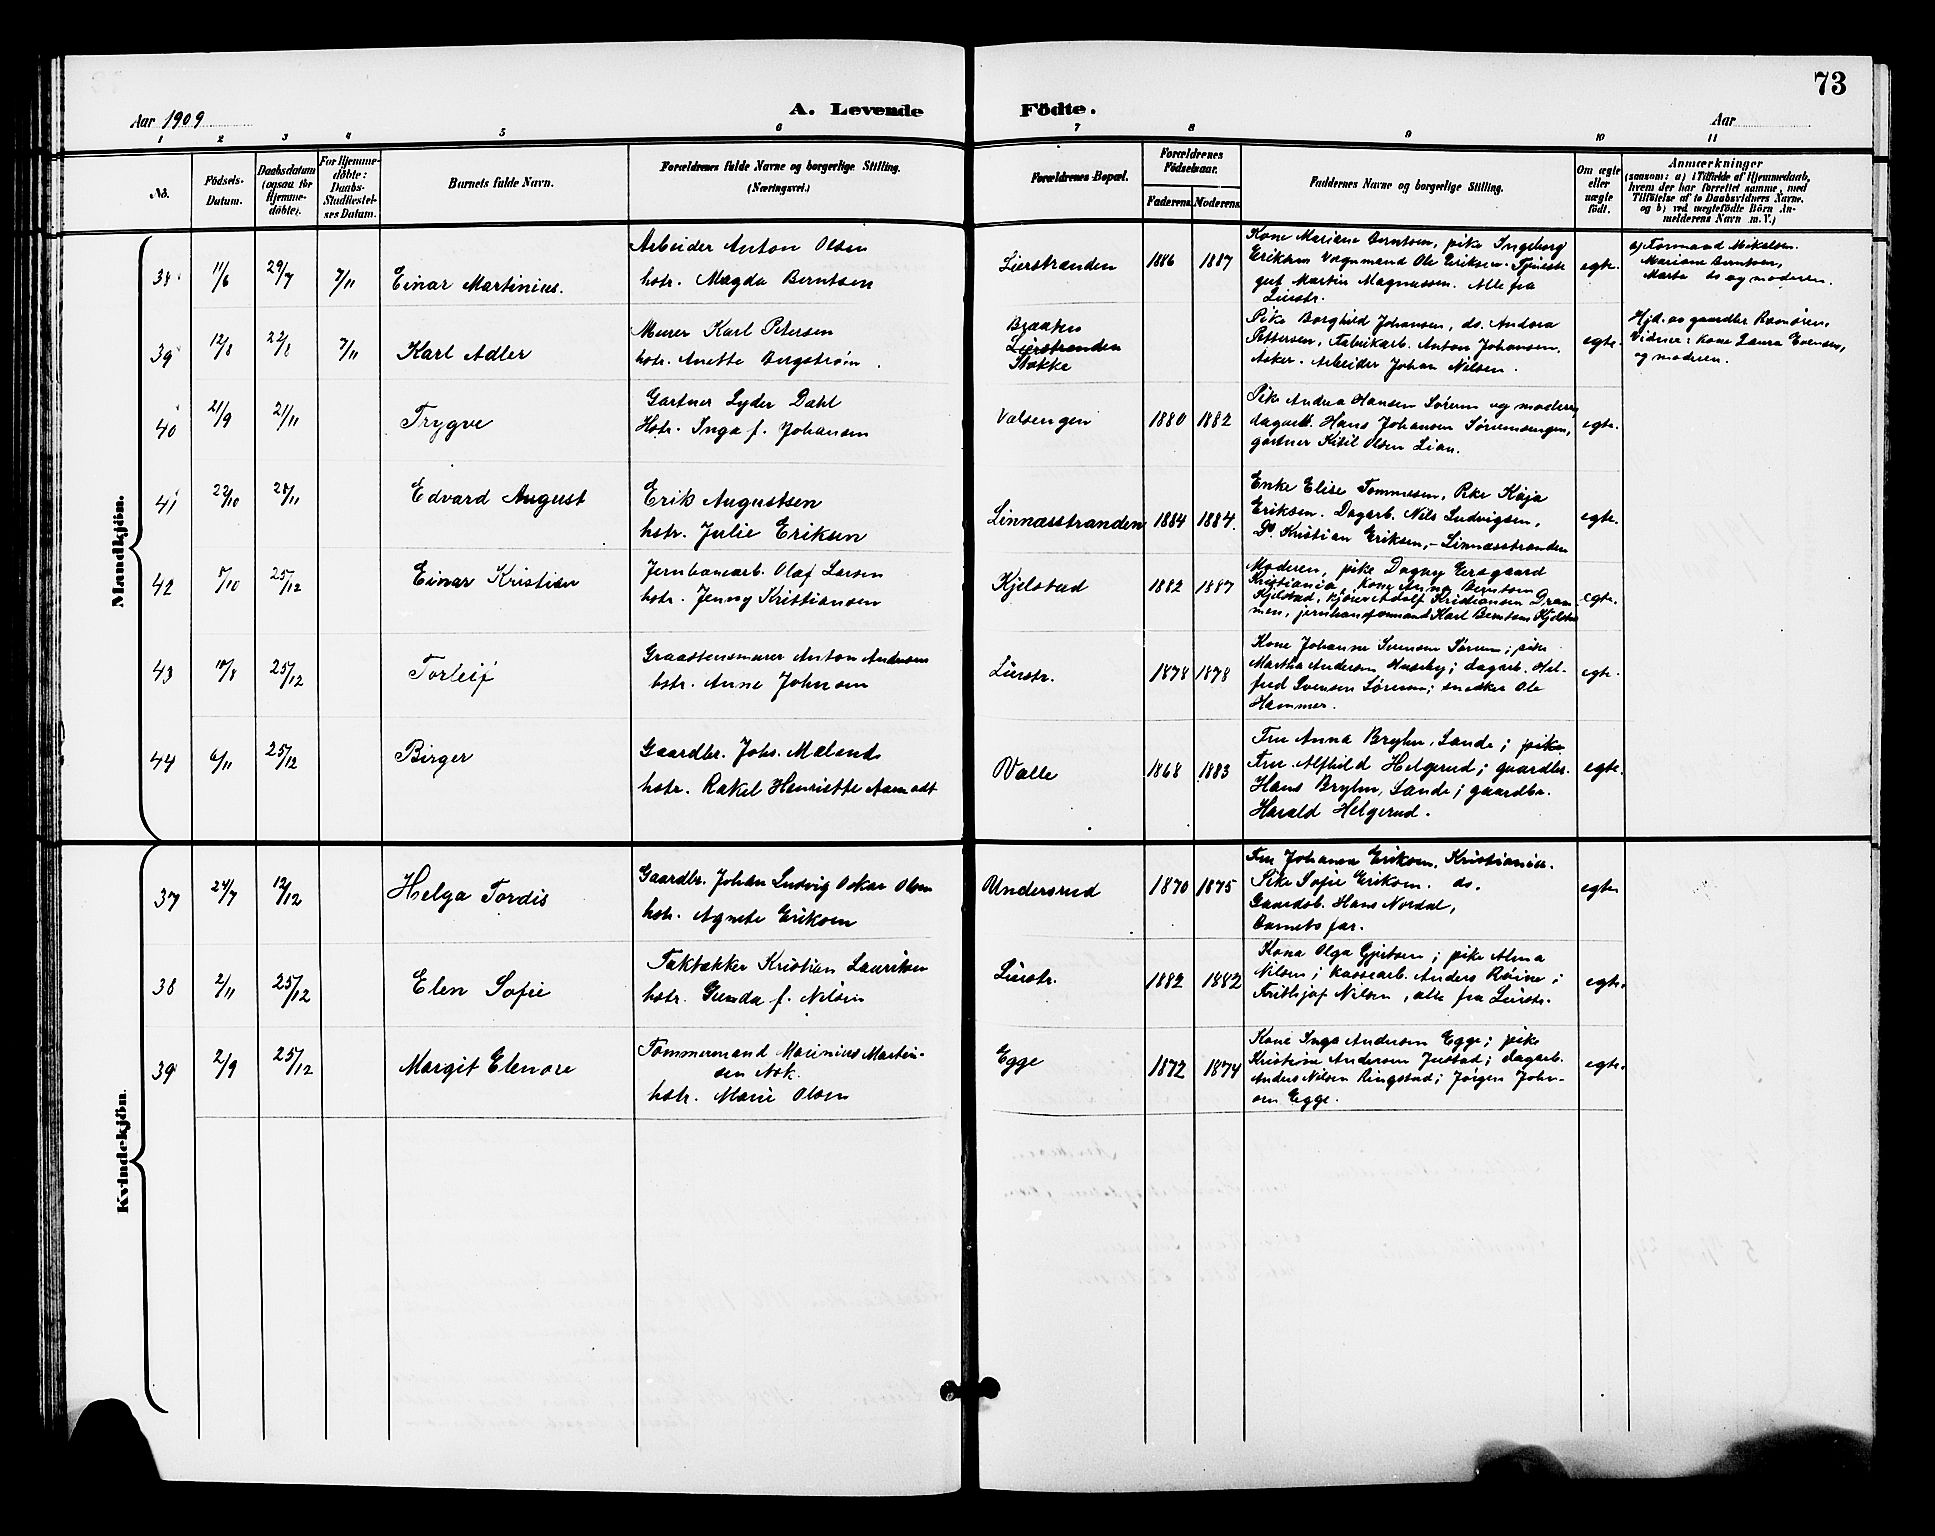 73
Aar 1909
A. Levende Födte.
Aar
1 2 3 4 5 6 7 8 9 10 11
No.
Födsels-Datum.
Daabsdatum (ogsaa for Hjemme-döbte).
For Hjemme-döbte: Daabs-Stadfæstel-ses Datum.
Barnets fulde Navn.
Forældrenes fulde Navne og borgerlige Stilling. (Næringsvei.)
Forældrenes Bopæl.
Forældrenes Födselsaar.
Faderens. Moderens.
Faddernes Navne og borgerlige Stilling.
Om ægte eller uægte födt.
Anmærkninger
(saasom: a) i Tilfælde af Hjemmedaab,
hvem der har forrettet samme, med
Tilföielse af to Daabsvidners Navne,
og b) ved uægtefödte Börn An-
melderens Navn m. V.)
Mandkjön.
38 11/6 29/7 7/11 Einar Martinius.
Arbeider Anton Olsen
hstr. Magda Berntsen
Lierstranden 1886 1887
Kone Mariane Berntsen, pike Ingeborg
Eriksen Vognmand Ole Eriksen. Tjeneste
gut Martin Magnussen. Alle fra
Lierstr.
egte.
a) Formand Mikalsen.
Mariane Berntsen,
Marta ds og moderen.
39 12/8 22/8 7/11 Karl Adler
Murer Karl Petersen
hstr. Anette Bergström.
Braaten
Lierstranden
Stokke
Pike Borghild Johansen, do. Andora
Pettersen, Fabrikarb. Anton Johansen,
Asker. Arbeider Johan Nilsen.
egte.
Hjd. av gaardbr Ramören,
Vidner: kone Laura Evensen,
og moderen.
40 21/9 21/11 Trygve
Gartner Lyder Dahl
Hstr. Inga f. Johansen
Valsengen 1880 1882
Pike Andrea Hansen Sörum og moderen,
dagarb. Hans Johansen Sörumsengen,
gartner Kitil Olsen Lian.
egte.
41 22/10 28/11 Edvard August
Erik Augustsen
hstr. Julie Eriksen
Linnæsstranden 1884 1884.
Enke Elise Tommesen, Pike Kaja
Eriksen. Dagarb. Nils Ludvigsen,
Do. Kristian Eriksen, - Linnæsstranden
egte.
42 5/10 25/12 Einar Kristian
Jernbanearb. Olaf Larsen
hstr. Jenny Kristiansen
Kjelstad 1882 1887
Moderen, pike Dagny
Kristiania, kone Anna Berntsen
Kjelstad, Adolf Kristiansen Dram
men, jernbaneformand Karl Berntsen Kjelstad
egte.
43 10/8 25/12 Torleif
Graastensmurer Anton Andersen
hstr. Anne Johnsen
Lierstr. 1878 1878
Kone Johanne Svensen Sörum; pike
Martha Andersen Huseby; dagarb. Hel-
fred Svensen Sörum; snedker Ole
Hammer.
egte.
44 6/11 25/12 Birger
Gaardbr. Johs. Mæland
hstr. Rakel Henriette Aamodt
Valle 1868 1883
Fru Anna Bryhn, Sande; pike
Fru Alfhild Helgerud; gaardbr.
Hans Bryhn, Sande; gaardbr.
Harald Helgerud.
egte.
Kvindekjön.
37 24/7 12/12 Helga Tordis
Gaardbr. Johan Ludvig Oskar Olsen
hstr. Agnete Eriksen
Undersrud 1870 1875
Fru Johanna Eriksen, Kristiania.
Pike Sofie Eriksen. do.
Gaardsb. Hans Nordal,
Barnets far.
egte
38 2/11 25/12 Elen Sofie
Taktækker Kristian Lauritsen
hstr. Gunda f. Nilsen
Lierstr. 1882 1882
Kona Olga Gjertsen; pike Alma
Nilsen; kassearb. Anders Röine;
Frithjof Nilsen, alle fra Lierstr.
egte.
39 2/9 25/12 Margit Elenore
Tömmermand Marinius Martin-
sen Nok.
hstr. Marie Olsen
Egge 1872 1874
Kone Inga Andersen Egge; pike
Kristine Andersen Justad; dagarb.
Anders Nilsen Ringstad; Jörgen John-
sen Egge.
egte.